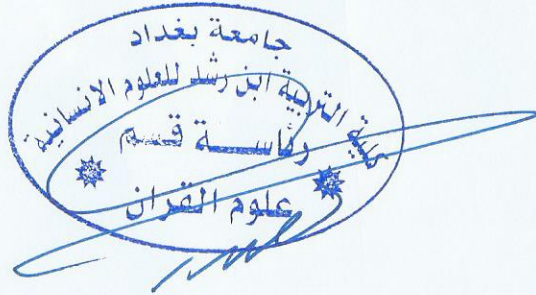 جامعة بغداد
كلية التربية ابن رشد للعلوم الانسانية
رئاسة قسم
علوم القران